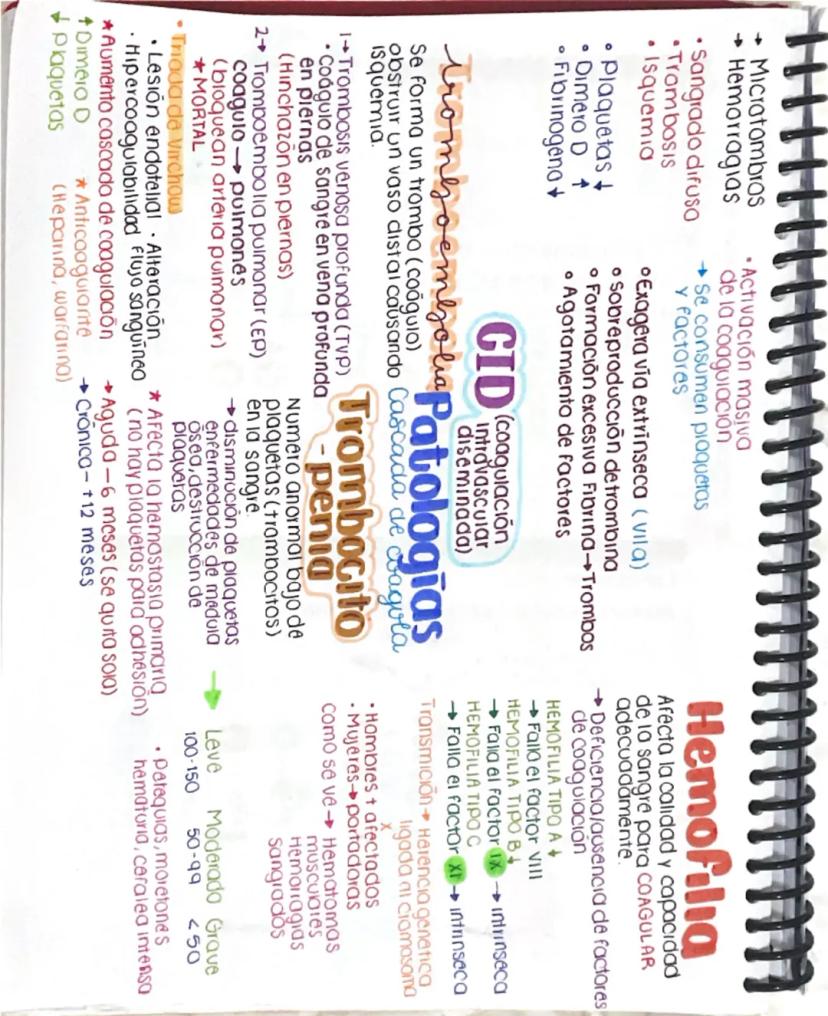 → Microtrombos
→ Hemorragias
• Sangrado difuso
• Trombosis
• Isquemia
° Plaquetas ↓
° Dímero D ↑
° Fibrinógeno ↓
• Activación masiva
de la coagulación
→ Se consumen plaquetas
y factores
° Exagera vía extrínseca (VIIa)
° Sobreproducción de trombina
° Formación excesiva Fibrina → Trombos
° Agotamiento de factores
CID (coagulación
intravascular
diseminada)
Patologías
Cascada de coagula
Hemofilia
Afecta la calidad y capacidad
de la sangre para COAGULAR
adecuadamente.
→ Deficiencia/ausencia de factores
de coagulación
HEMOFILIA TIPO A ↓
→ Falla el factor VIII
HEMOFILIA TIPO B ↓
→ Falla el factor IX → intrínseca
HEMOFILIA TIPO C
→ Falla el factor XI → intrínseca
Transmición → Herencia genética
ligada al cromosoma
X
• Hombres + afectados
• Mujeres → portadoras
Como se ve → Hematomas
musculares
Hemorragias
Sangrados
Tromboembolia
Se forma un trombo (coágulo)
obstruir un vaso distal causando
isquemia.
1→ Trombosis venosa profunda (TVP)
• Coágulo de sangre en vena profunda
en piernas
(Hinchazón en piernas)
2→ Tromboembolia pulmonar (EP)
coagulo → pulmones
(bloquean arteria pulmonar)
★ MORTAL
• Triada de Virchow
• Lesión endotelial • Alteración
• Hipercoagulabilidad Flujo sanguíneo
★ Aumento cascada de coagulación
↑ Dímero D
↓ Plaquetas
★ Anticoagulante
(Heparina, warfarina)
Trombocito
-penia
Numero anormal bajo de
plaquetas (trombocitos)
en la sangre.
→ disminución de plaquetas
enfermedades de médula
ósea, destrucción de
plaqueras
★ Afecta la hemostasia primaria
(no hay plaquetas para adhesión)
→ Aguda – 6 meses (se quita sola)
→ Crónica – +12 meses
→ Leve Moderado Grave
100-150 50-99 <50
• petequias, moretones
hematuria, cefalea intensa